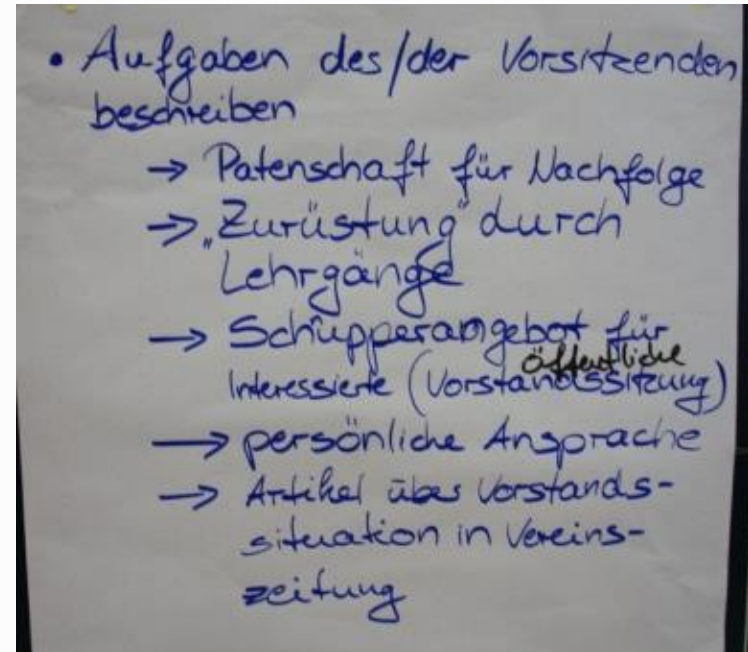 • Aufgaben des/der Vorsitzenden
beschreiben
→ Patenschaft für Nachfolge
→ „Zurüstung" durch
Lehrgänge
→ Schnupperangebot für
öffentliche
Interessierte (Vorstandssitzung)
→ persönliche Ansprache
→ Artikel über Vorstands-
situation in Vereins-
zeitung